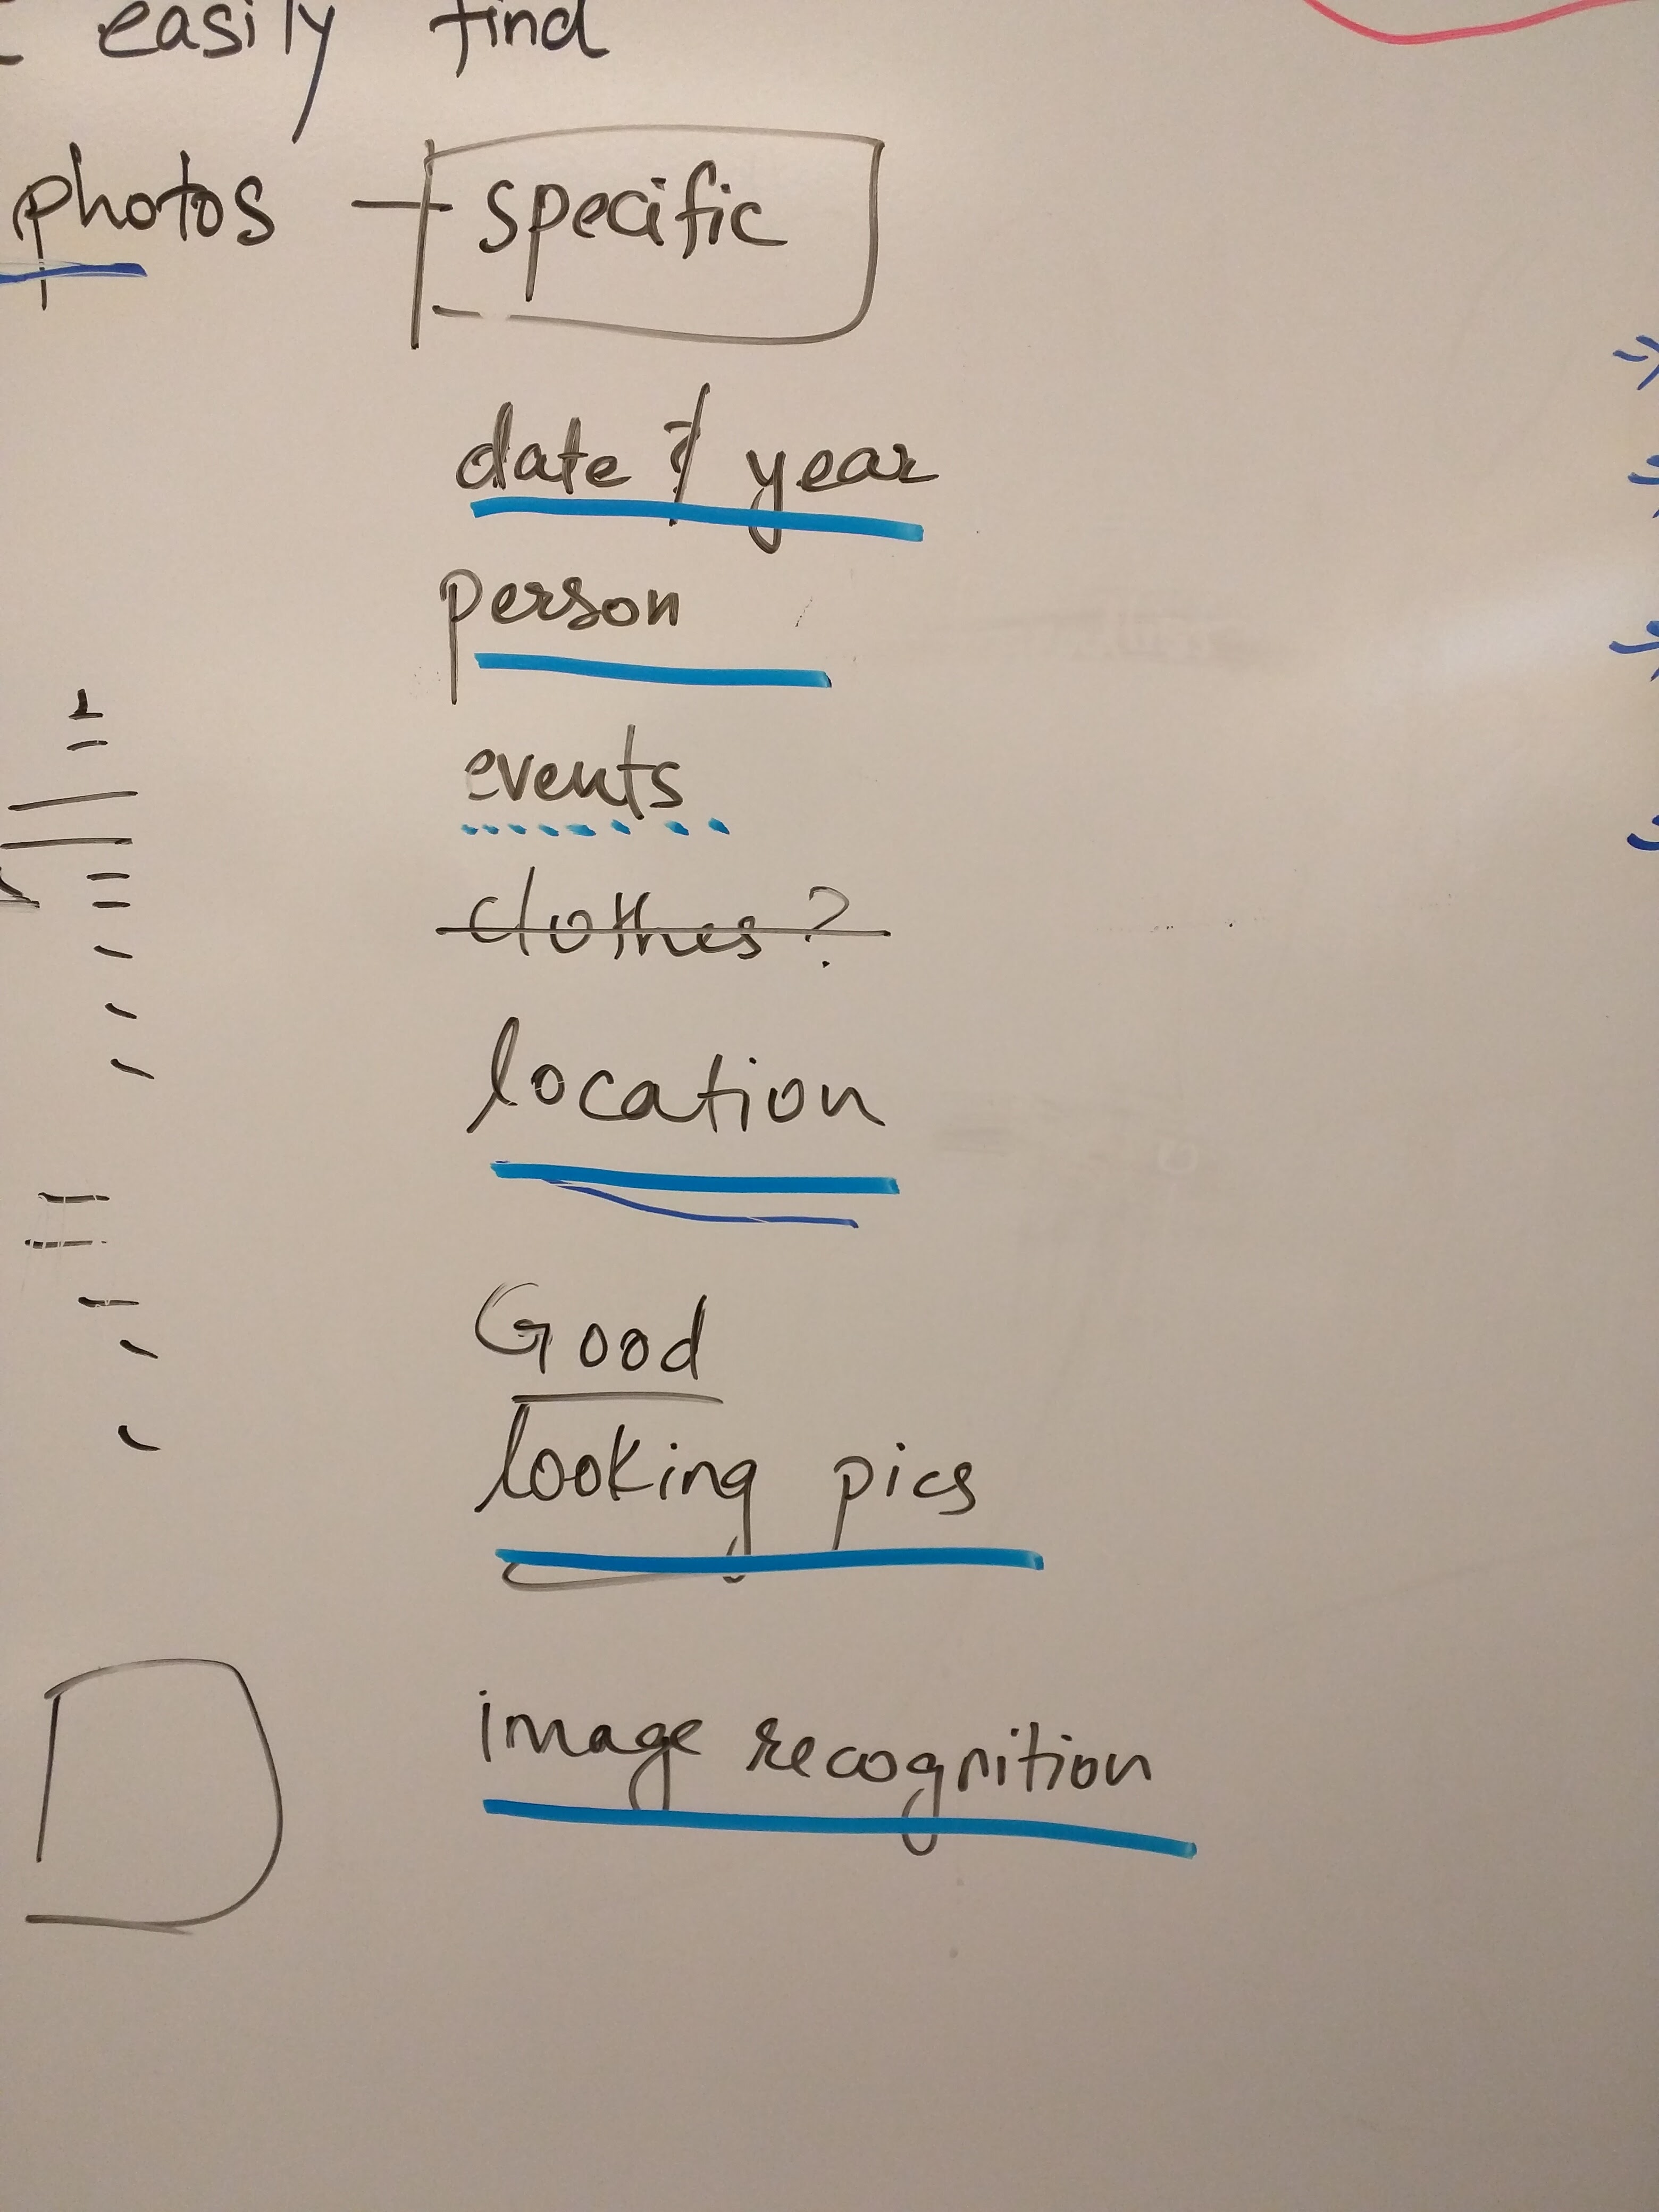 easily find
photos - specific
date & year
person
events
clothes?
location
Good
looking pics
image recognition